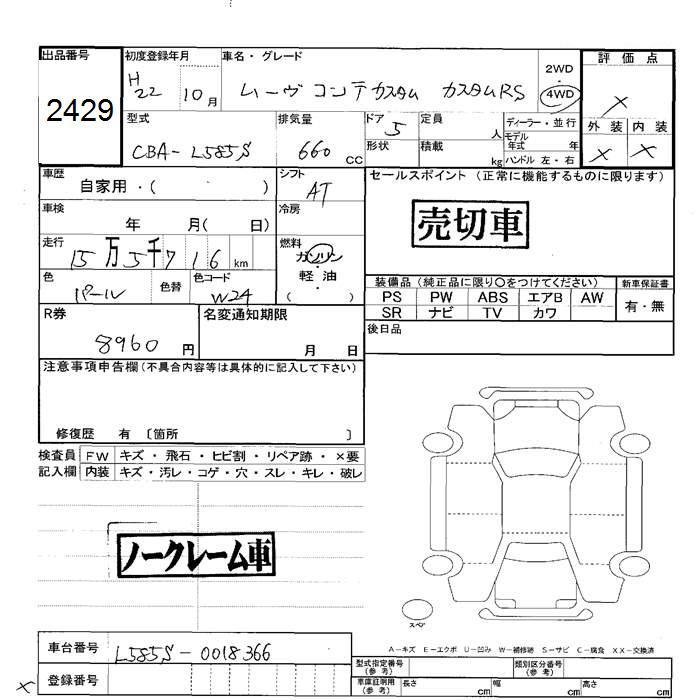 出品番号
2429
初度登録年月
H
22 10月
車名・グレード
ムーヴ コンテ カスタム カスタムRS
2WD
・
4WD
評価点
×
外装 内装
× ×
型式
CBA-L585S
排気量
660 CC
ドア 5
形状
定員 人
積載 kg
ディーラー・並行
モデル
年式 年
ハンドル 左・右
車歴
自家用・( )
シフト
AT
セールスポイント (正常に機能するものに限ります)
売切車
車検
年 月( 日)
冷房
走行
15万5千716 km
燃料
ガソリン
・
軽油
( )
色
パール
色替
色コード
W24
装備品 (純正品に限り○をつけてください)
PS PW ABS エアB AW
SR ナビ TV カワ
新車保証書
有・無
R券
8960 円
名変通知期限
月 日
後日品
注意事項申告欄 (不具合内容等は具体的に記入して下さい)
修復歴 有 〔箇所 〕
検査員
記入欄
FW キズ・飛石・ヒビ割・リペア跡・×要
内装 キズ・汚レ・コゲ・穴・スレ・キレ・破レ
ノークレーム車
スペア
A−キズ E−エクボ U−凹み W−補修跡 S−サビ C−腐食 XX−交換済
車台番号
L585S-0018366
登録番号
×
型式指定番号
(参考)
類別区分番号
(参考)
車庫証明用
(参考)
長さ cm
幅 cm
高さ cm